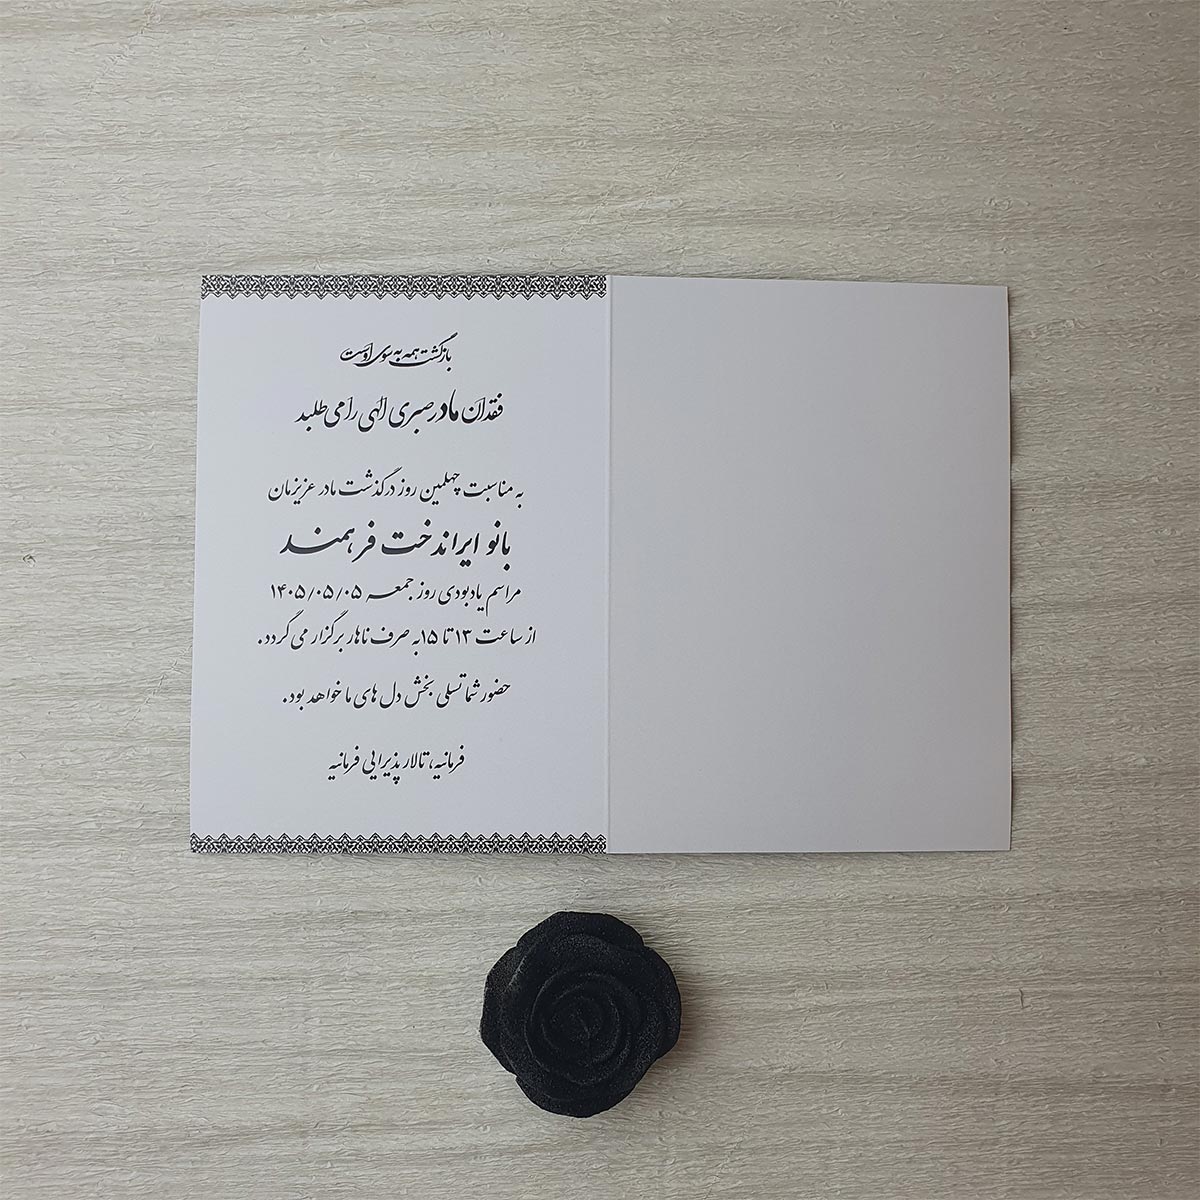 بازگشت همه به سوی اوست
فقدان مادر صبری الهی را می طلبد
به مناسبت چهلمین روز درگذشت مادر عزیزمان
بانو ایراندخت فرهمند
مراسم یادبودی روز جمعه ۱۴۰۵/۰۵/۰۵
از ساعت ۱۳ تا ۱۵ به صرف ناهار برگزار می گردد.
حضور شما تسلی بخش دل های ما خواهد بود.
فرمانیه، تالار پذیرایی فرمانیه